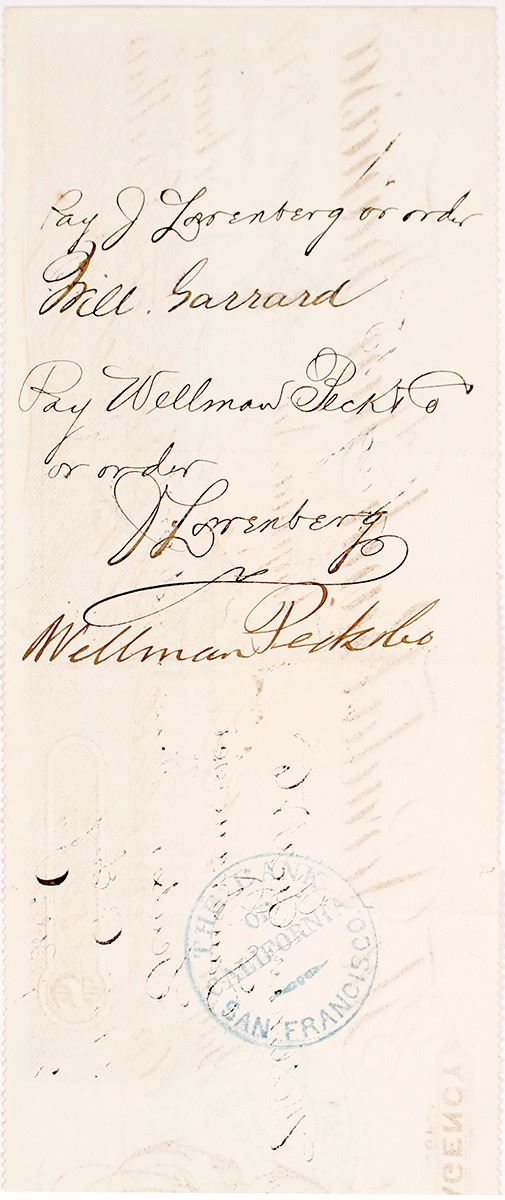 Pay J Lorenberg or order
Will. Garrard
Pay Wellman Peck & Co
or order
J Lorenberg
Wellman Peck & Co
THE BANK
OF
CALIFORNIA
SAN FRANCISCO
AGENCY